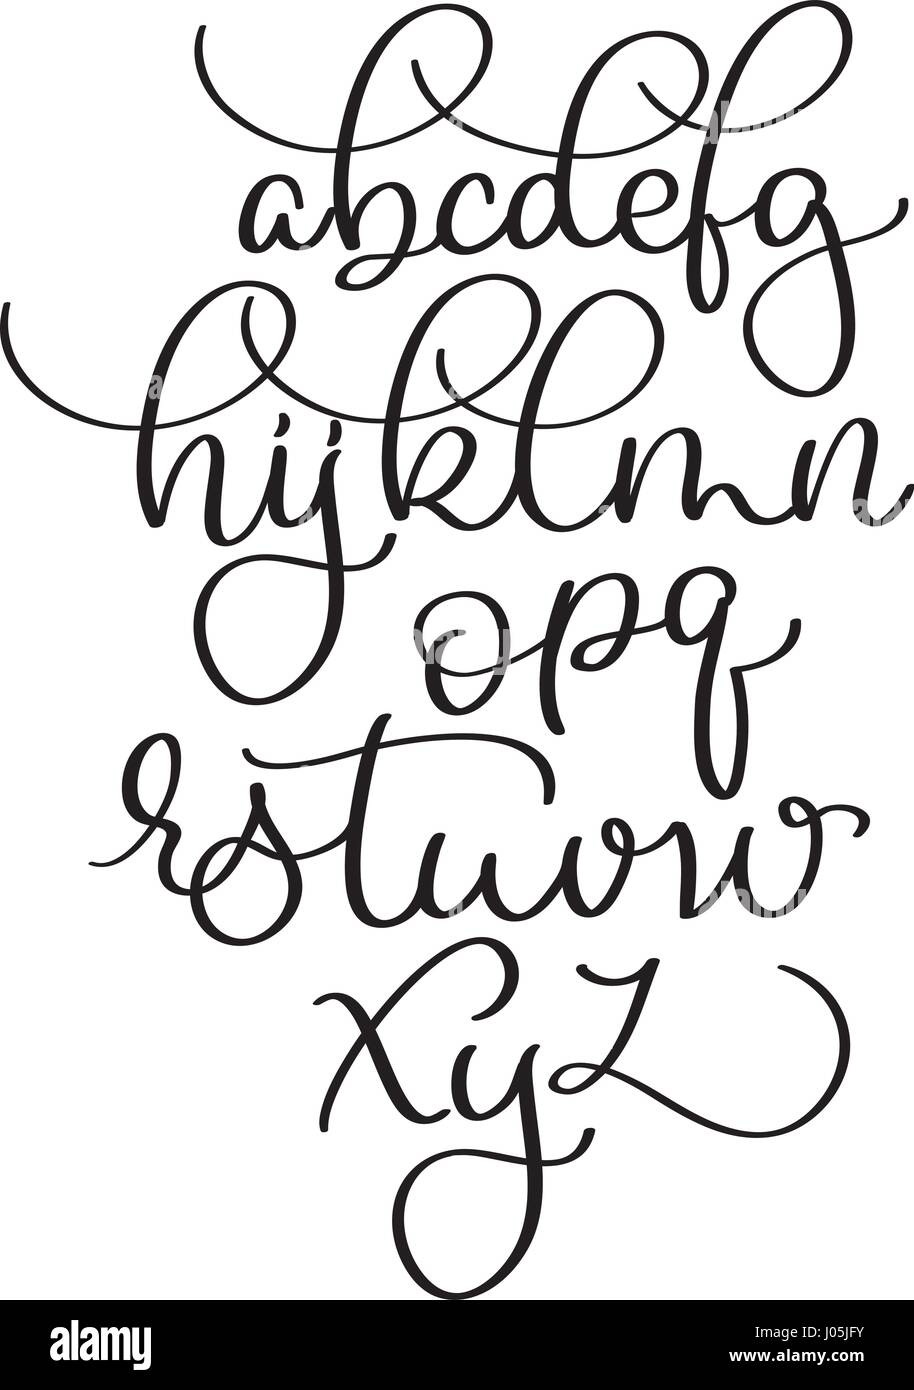 abcdefg
hijklmn
opq
rstuvw
xyz
alamy
Image ID: J05JFY
www.alamy.com